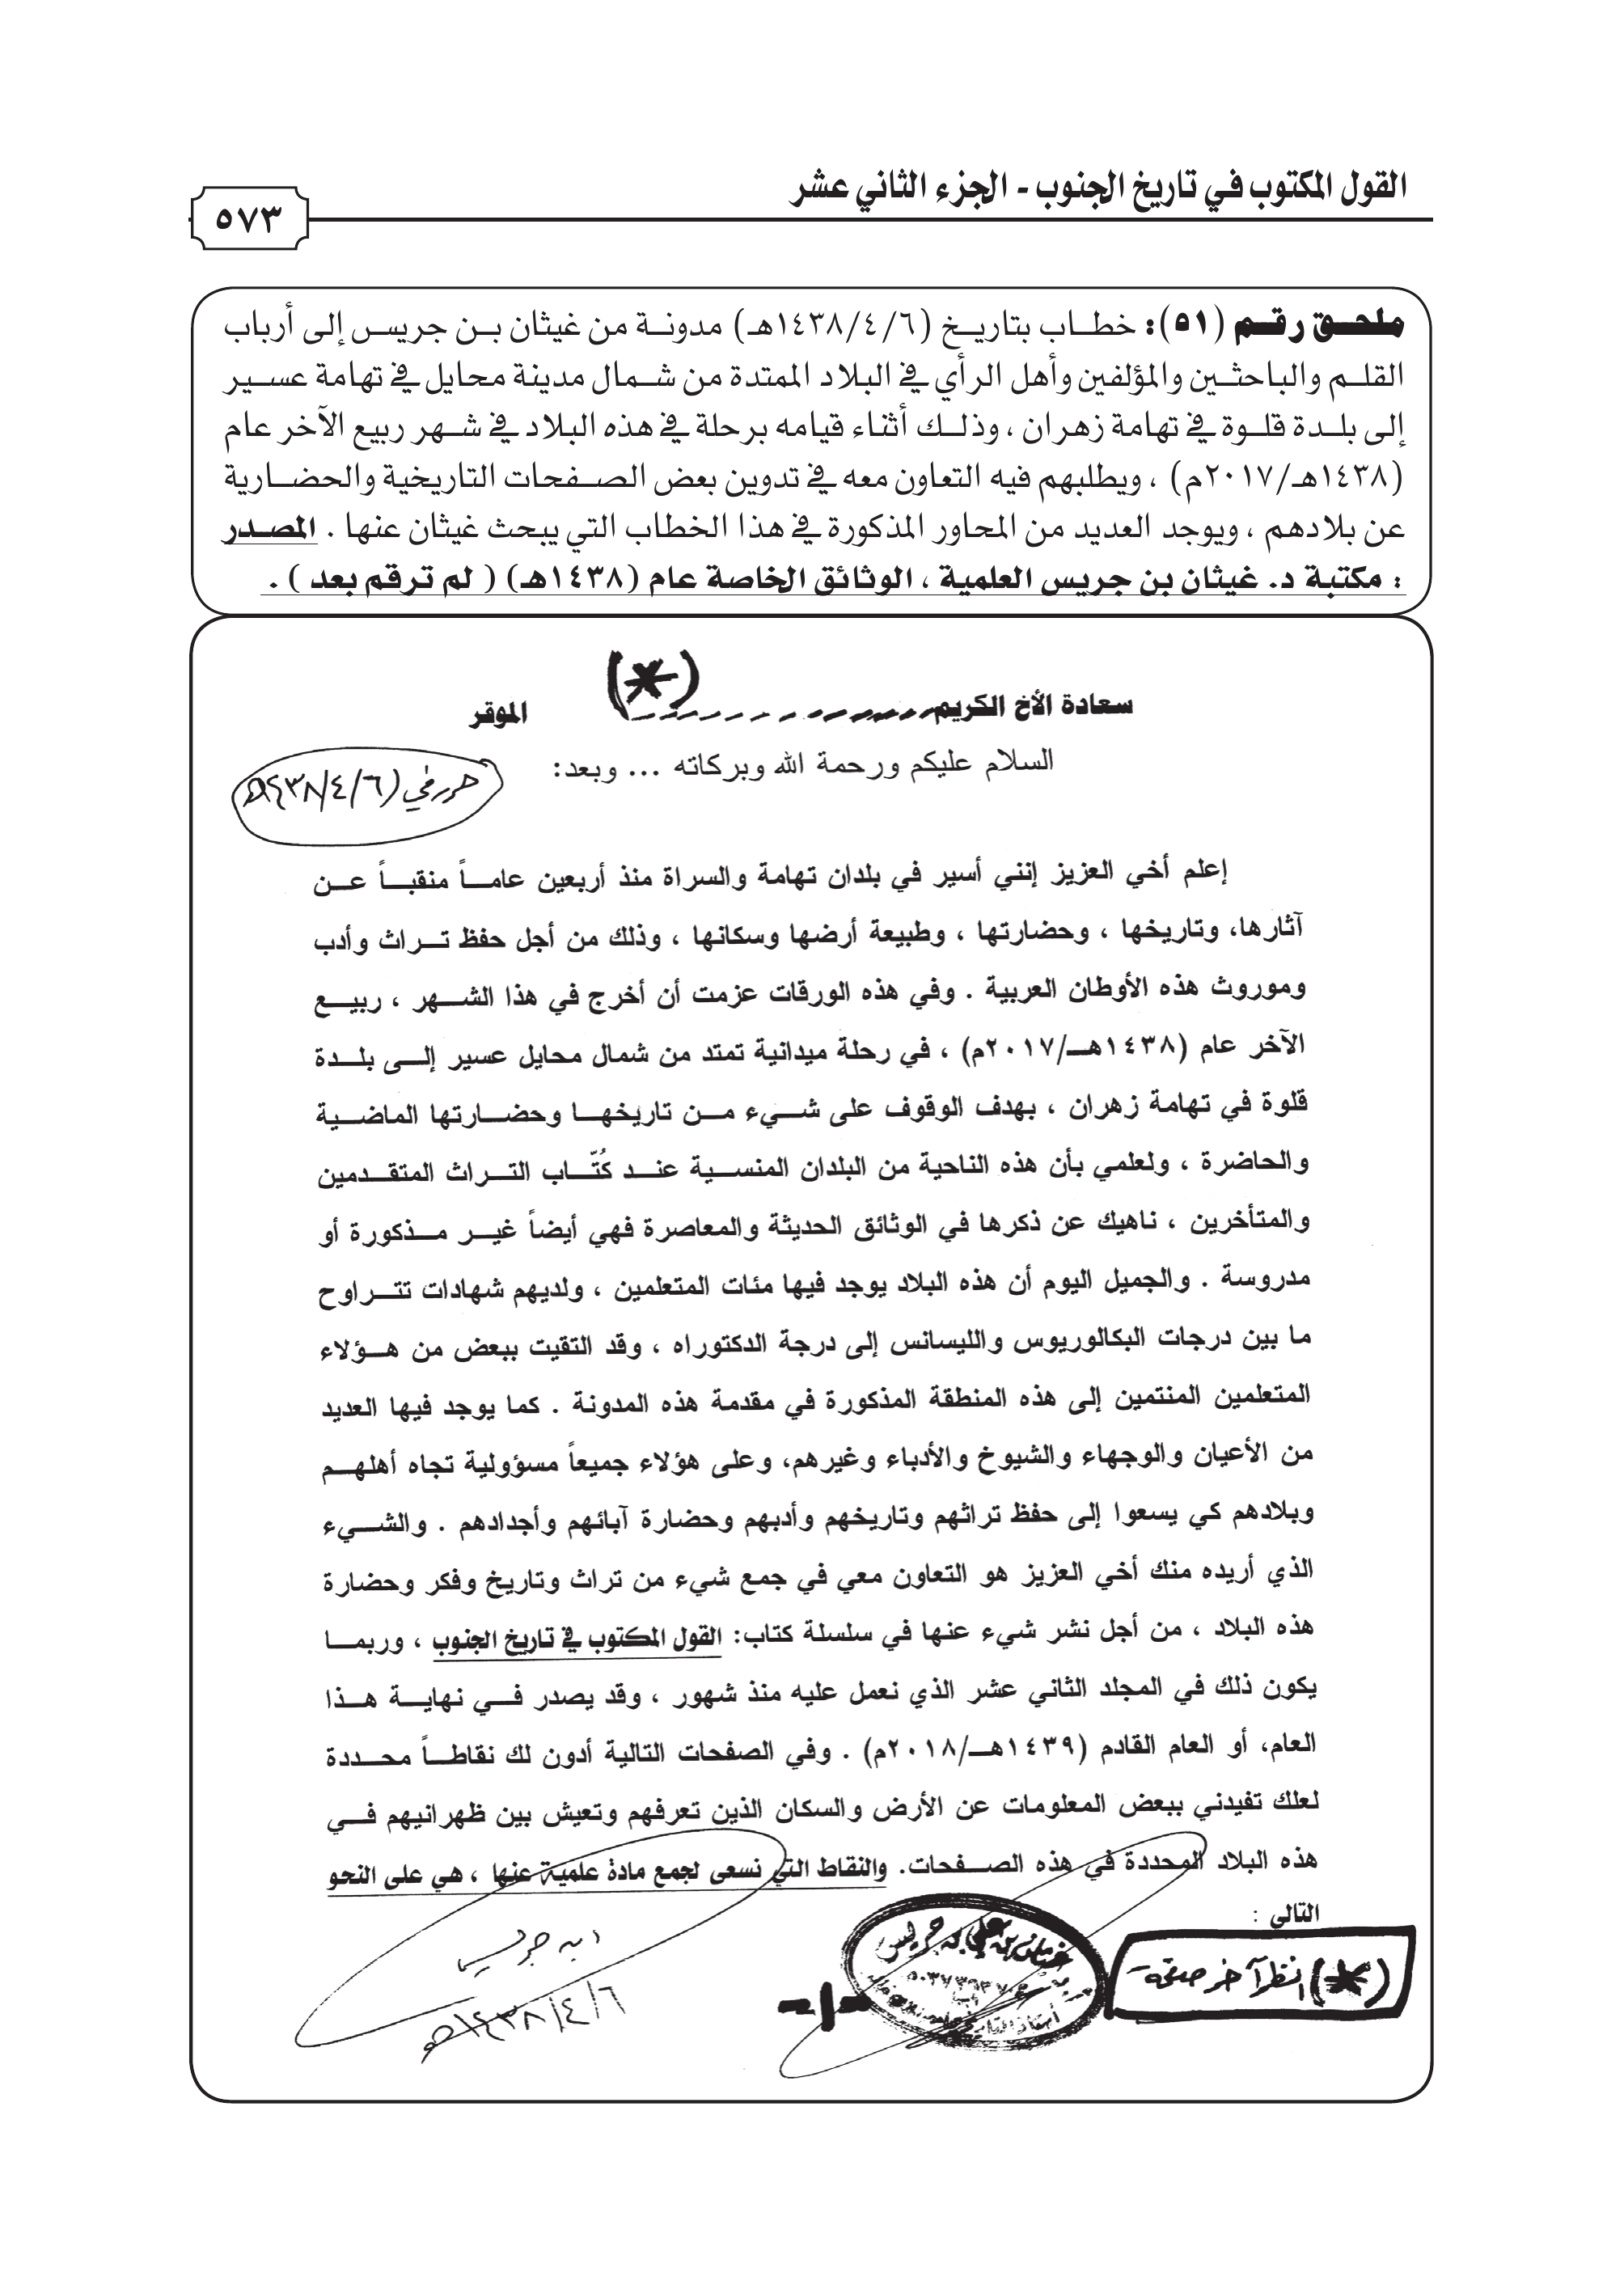 القول المكتوب في تاريخ الجنوب - الجزء الثاني عشر
٥٧٣
ملحق رقم (٥١): خطاب بتاريخ (١٤٣٨/٤/٦هـ) مدونة من غيثان بن جريس إلى أرباب
القلم والباحثين والمؤلفين وأهل الرأي في البلاد الممتدة من شمال مدينة محايل في تهامة عسير
إلى بلدة قلوة في تهامة زهران ، وذلك أثناء قيامه برحلة في هذه البلاد في شهر ربيع الآخر عام
(١٤٣٨هـ/٢٠١٧م) ، ويطلبهم فيه التعاون معه في تدوين بعض الصفحات التاريخية والحضارية
عن بلادهم ، ويوجد العديد من المحاور المذكورة في هذا الخطاب التي يبحث غيثان عنها . المصدر
: مكتبة د. غيثان بن جريس العلمية ، الوثائق الخاصة عام (١٤٣٨هـ) ( لم ترقم بعد ) .
سعادة الأخ الكريم (*) الموقر
السلام عليكم ورحمة الله وبركاته ... وبعد:
حرر في (١٤٣٨/٤/٦هـ)
إعلم أخي العزيز إنني أسير في بلدان تهامة والسراة منذ أربعين عاماً منقباً عن
آثارها، وتاريخها ، وحضارتها ، وطبيعة أرضها وسكانها ، وذلك من أجل حفظ تراث وأدب
وموروث هذه الأوطان العربية . وفي هذه الورقات عزمت أن أخرج في هذا الشهر ، ربيع
الآخر عام (١٤٣٨هـ/٢٠١٧م) ، في رحلة ميدانية تمتد من شمال محايل عسير إلى بلدة
قلوة في تهامة زهران ، بهدف الوقوف على شيء من تاريخها وحضارتها الماضية
والحاضرة ، ولعلمي بأن هذه الناحية من البلدان المنسية عند كُتّاب التراث المتقدمين
والمتأخرين ، ناهيك عن ذكرها في الوثائق الحديثة والمعاصرة فهي أيضاً غير مذكورة أو
مدروسة . والجميل اليوم أن هذه البلاد يوجد فيها مئات المتعلمين ، ولديهم شهادات تتراوح
ما بين درجات البكالوريوس والليسانس إلى درجة الدكتوراه ، وقد التقيت ببعض من هؤلاء
المتعلمين المنتمين إلى هذه المنطقة المذكورة في مقدمة هذه المدونة . كما يوجد فيها العديد
من الأعيان والوجهاء والشيوخ والأدباء وغيرهم، وعلى هؤلاء جميعاً مسؤولية تجاه أهلهم
وبلادهم كي يسعوا إلى حفظ تراثهم وتاريخهم وأدبهم وحضارة آبائهم وأجدادهم . والشيء
الذي أريده منك أخي العزيز هو التعاون معي في جمع شيء من تراث وتاريخ وفكر وحضارة
هذه البلاد ، من أجل نشر شيء عنها في سلسلة كتاب: القول المكتوب في تاريخ الجنوب ، وربما
يكون ذلك في المجلد الثاني عشر الذي نعمل عليه منذ شهور ، وقد يصدر في نهاية هذا
العام، أو العام القادم (١٤٣٩هـ/٢٠١٨م) . وفي الصفحات التالية أدون لك نقاطاً محددة
لعلك تفيدني ببعض المعلومات عن الأرض والسكان الذين تعرفهم وتعيش بين ظهرانيهم في
هذه البلاد المحددة في هذه الصفحات. والنقاط التي نسعى لجمع مادة علمية عنها ، هي على النحو
التالي :
(*) انظر آخر صفحة
غيثان بن علي بن جريس
-١-
ابن جريس
١٤٣٨/٤/٦هـ